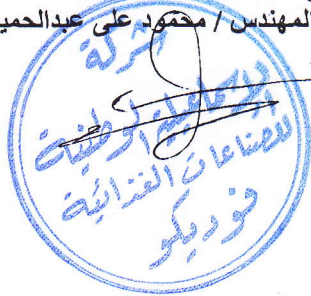 المهندس / محمود على عبدالحميد
شركة
الإسماعيلية الوطنية
للصناعات الغذائية
فوديكو